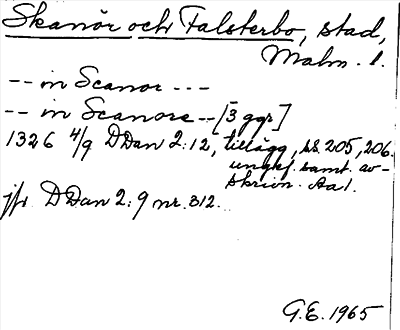 Skanör och Falsterbo, stad,
Malm. l.
-- in Scanor ---
-- in Scanore -- [3 ggr]
1326 4/9 DDan 2:12, tillägg, ss. 205, 206.
ungef. samt. av-
skrivn. Aa1.
jfr DDan 2:9 nr. 312.
G.E. 1965